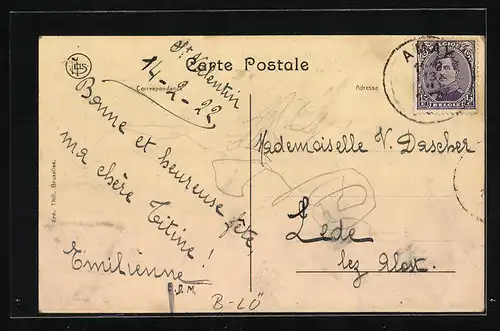 Carte Postale
Correspondance
Adresse
St Valentin
14-2-22
Bonne et heureuse fête,
ma chère Titine!
Emilienne
E.D.M.
Mademoiselle V. Dascher
Lede
lez Alost.
B-LÖ
Ern. Thill, Bruxelles.
BELGIE
15